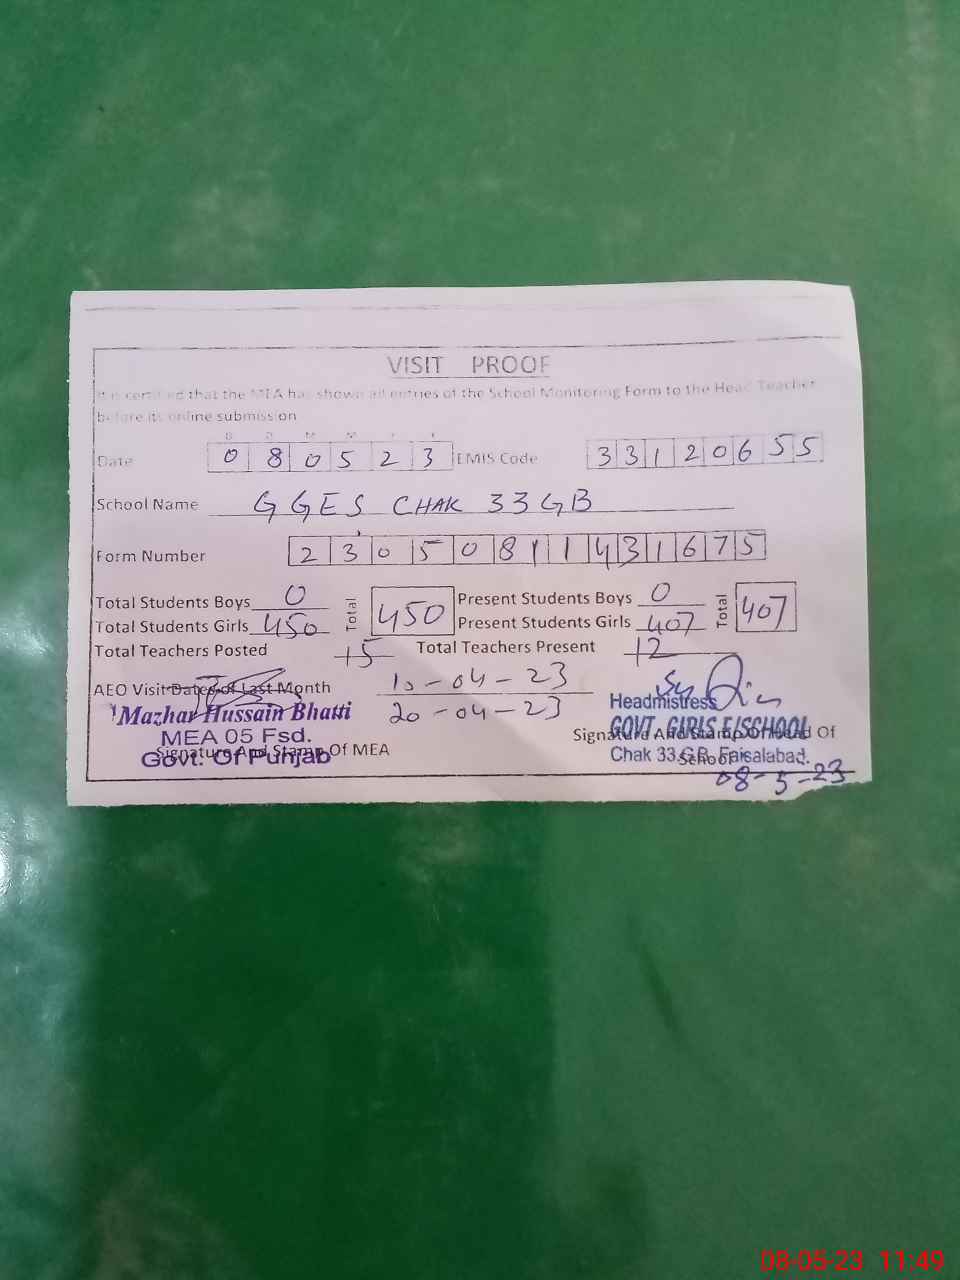 VISIT PROOF
It is certified that the MEA has shown all entries of the School Monitoring Form to the Head Teacher
before its online submission
D D M M Y Y
Date 0 8 0 5 2 3 EMIS Code 3 3 1 2 0 6 5 5
School Name GGES CHAK 33 GB
Form Number 2 3 0 5 0 8 1 1 4 3 1 6 7 5
Total Students Boys 0 Total 450 Present Students Boys 0 Total 407
Total Students Girls 450 Present Students Girls 407
Total Teachers Posted 15 Total Teachers Present 12
AEO Visit Dates of Last Month 10-04-23
20-04-23
Mazhar Hussain Bhatti
MEA 05 Fsd.
Govt. Of Punjab
Signature And Stamp Of MEA
Headmistress
GOVT. GIRLS E/SCHOOL
Chak 33 G.B. Faisalabad.
Signature And Stamp Of Head Of
School
08-5-23
08-05-23 11:49